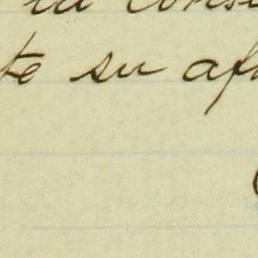 la conse
te su af